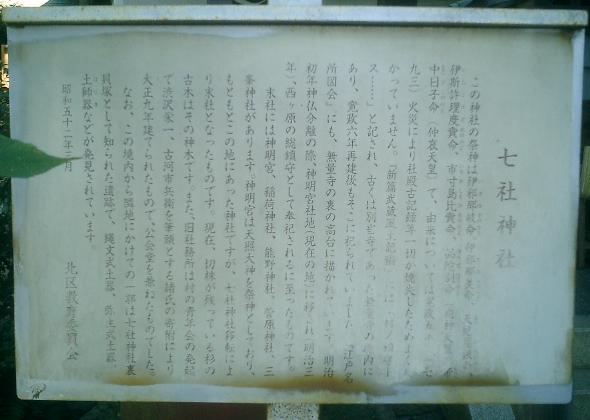 七社神社
この神社の祭神は伊邪那岐命、伊邪那美命、天児屋根命、
伊斯許理度売命、市寸島比売命、品陀別命
中日子命（仲哀天皇）で、由来については寛政五年（一七
九三）火災により社殿古記録等一切が焼失したためよくわ
かっていません。「新篇武蔵風土記稿」には「村ノ鎮守トス
ス……」と記され、古くは別当寺であった無量寺の境内に
あり、寛政六年再建後もそこに祀られていました。「江戸名
所図会」にも、無量寺の裏の高台に描かれています。明治
初年神仏分離の際、神明宮社地（現在の地）に移され、明治三
年、西ヶ原の総鎮守として奉祀されるに至ったものです。
末社には神明宮、稲荷神社、熊野神社、菅原神社、三
峯神社があります。神明宮は天照大神を祭神としており、
もともとこの地にあった神社ですが、七社神社移転によ
り末社となったものです。現在、切株が残っている杉の
古木はその神木です。また、旧社務所は村の青年会の発起
で渋沢栄一、古河市兵衛を筆頭とする諸氏の寄附により
大正九年建てられたもので、公会堂を兼ねたものでした。
なお、この境内から隣地にかけての一帯は七社神社裏
貝塚として知られた遺跡で、縄文式土器、弥生式土器、
土師器などが発見されています。
昭和五十二年三月
北区教育委員会